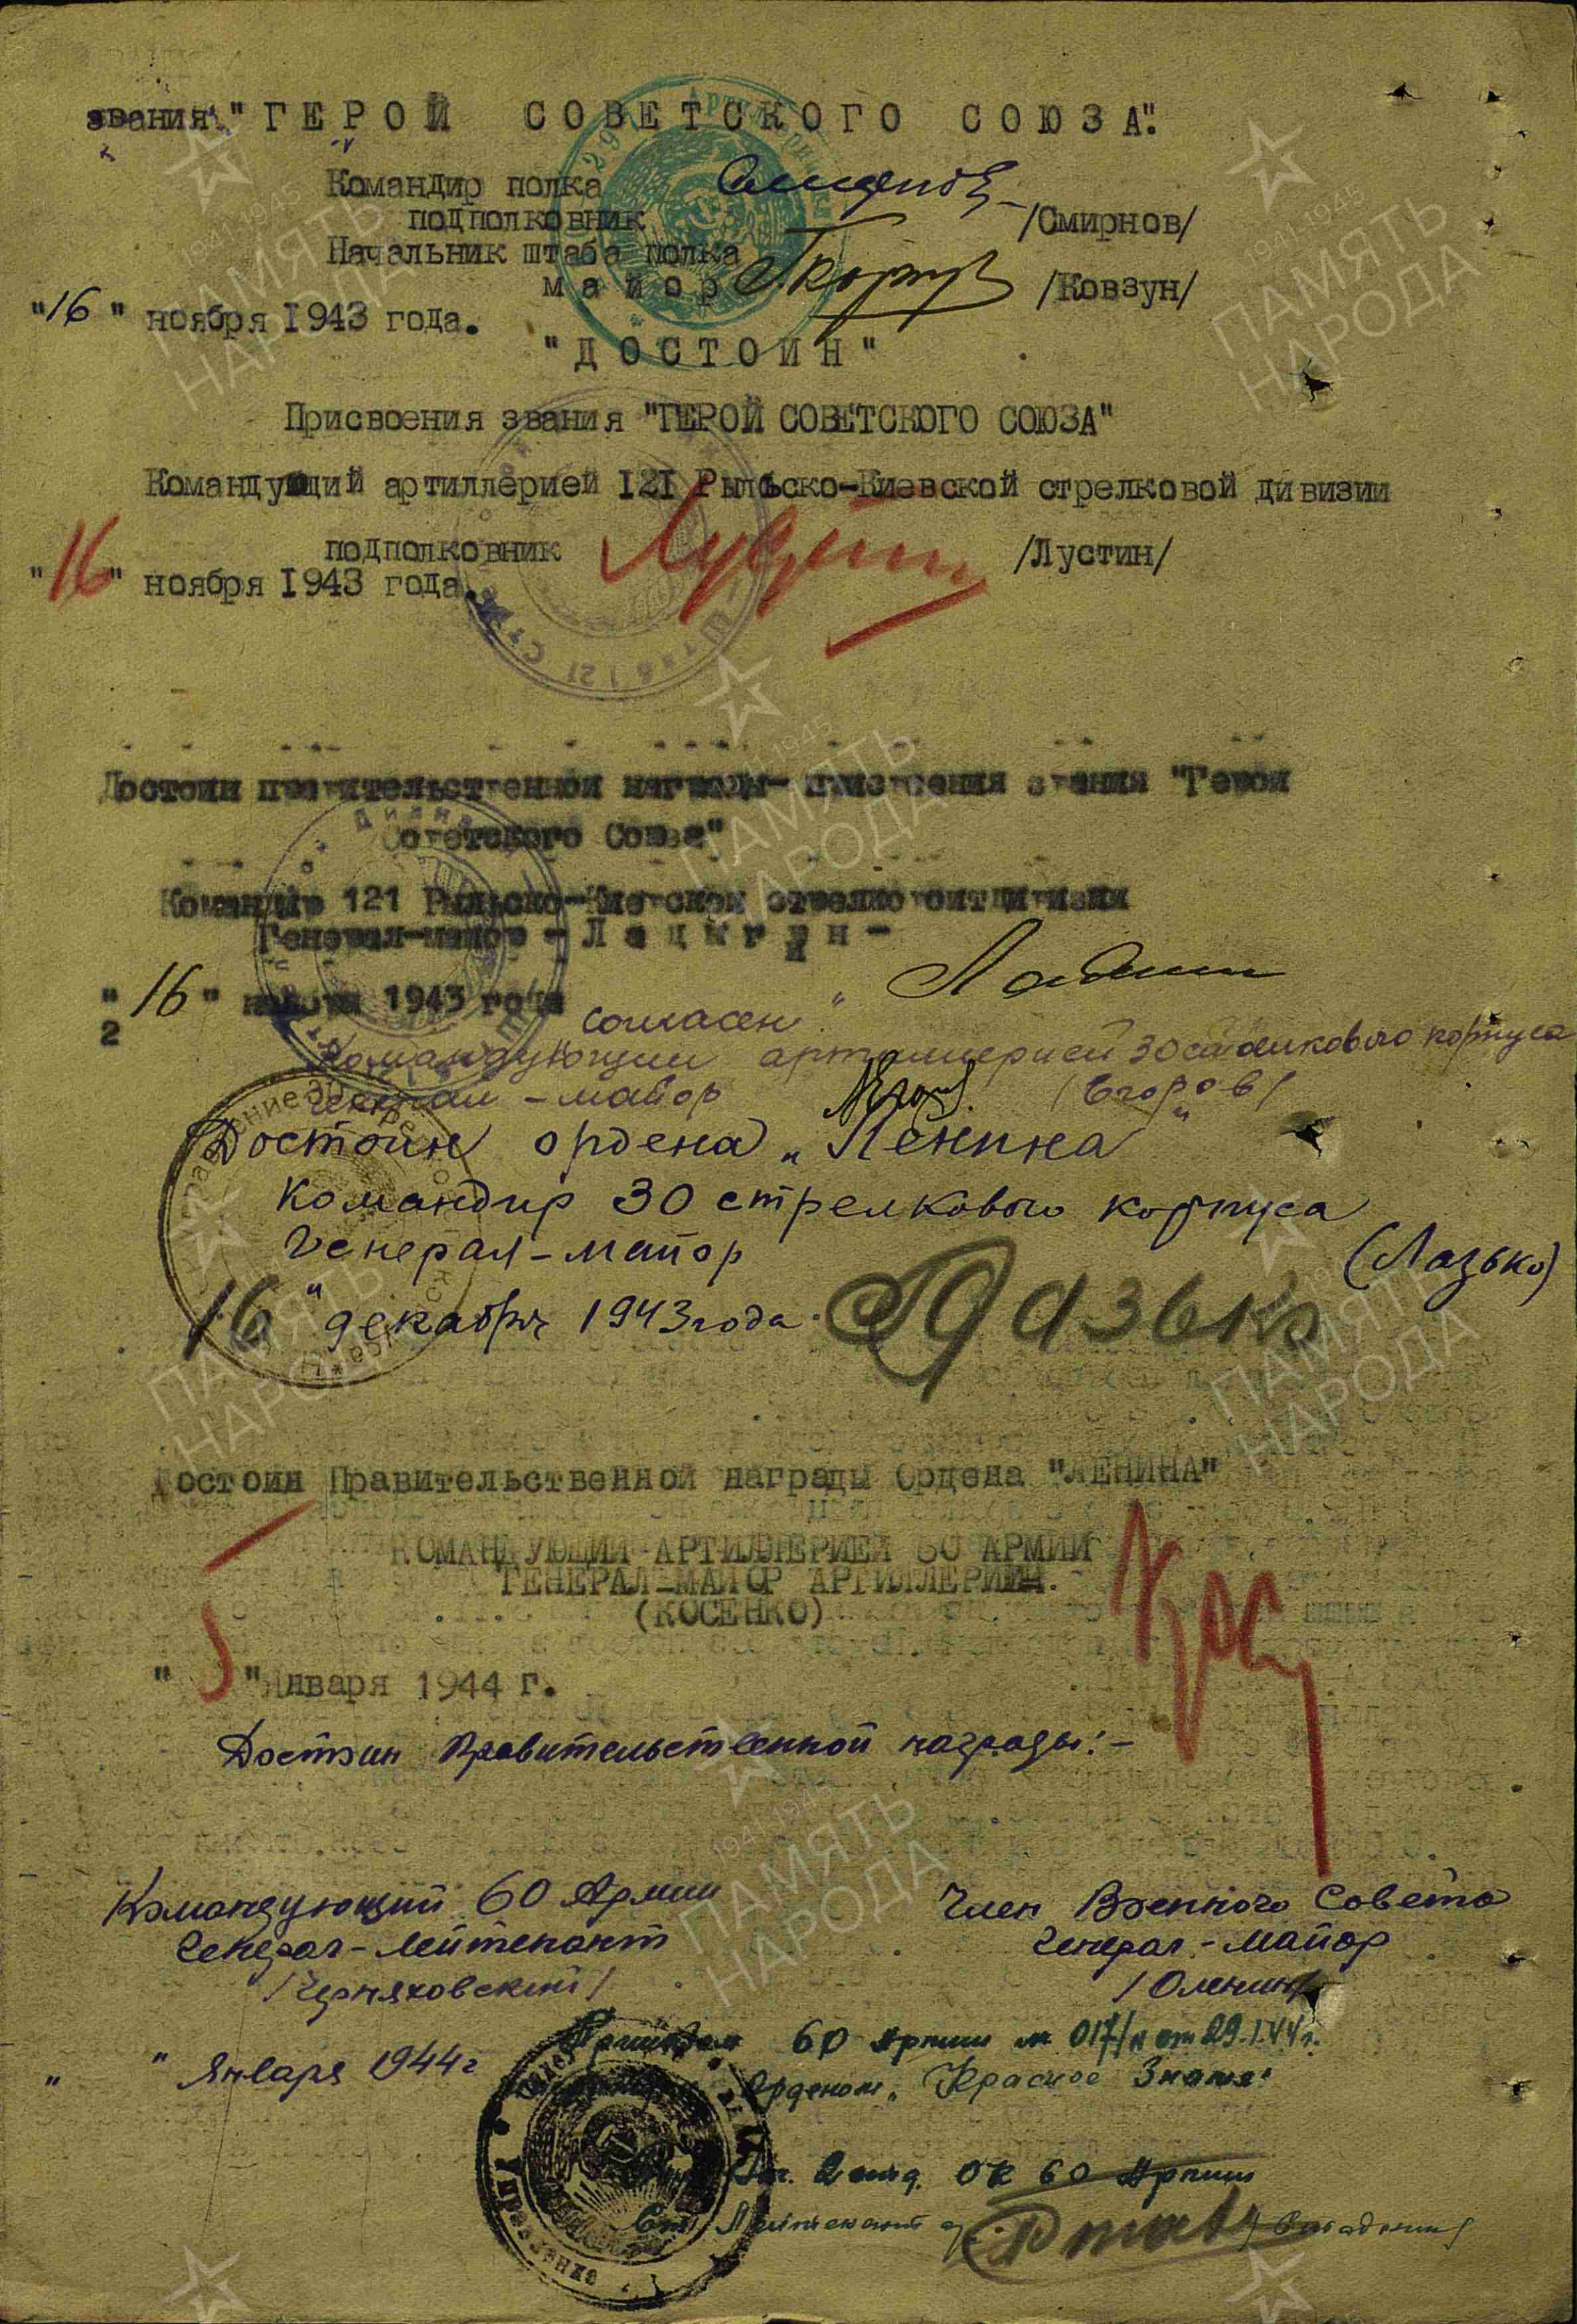 звания "ГЕРОЙ СОВЕТСКОГО СОЮЗА".
Командир полка
подполковник /Смирнов/
Начальник штаба полка
майор /Ковзун/
"16" ноября 1943 года.
"ДОСТОИН"
Присвоения звания "ГЕРОЙ СОВЕТСКОГО СОЮЗА"
Командующий артиллерией 121 Рыльско-Киевской стрелковой дивизии
подполковник /Лустин/
"16" ноября 1943 года.
Достоин правительственной награды- присвоения звания "Герой
Советского Союза"
Командир 121 Рыльско-Киевской стрелковой дивизии
Генерал-майор - Ладыгин -
"16" ноября 1943 года
2
согласен".
Командующий артиллерией 30 стрелкового корпуса
генерал-майор /Егоров/
Достоин ордена "Ленина"
Командир 30 стрелкового корпуса
Генерал-майор (Лазько)
16" декабря 1943 года. Лазько
Достоин Правительственной награды Ордена "ЛЕНИНА"
КОМАНДУЮЩИЙ АРТИЛЛЕРИЕЙ 60 АРМИИ
ГЕНЕРАЛ-МАЙОР АРТИЛЛЕРИИ.
(КОСЕНКО)
"5" Января 1944 г.
Достоин Правительственной награды:-
Командующий 60 Армии Член Военного Совета
Генерал-лейтенант Генерал-майор
/Черняховский/ /Оленин/
" " Января 1944 г
Приказом 60 Армии № 017/н от 29.1.44 г.
Орденом "Красное Знамя"
2 отд. ОК 60 Армии
Ст. Лейтенант
ПАМЯТЬ НАРОДА
1941-1945